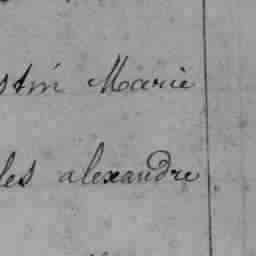 stin Marie
les alexandre